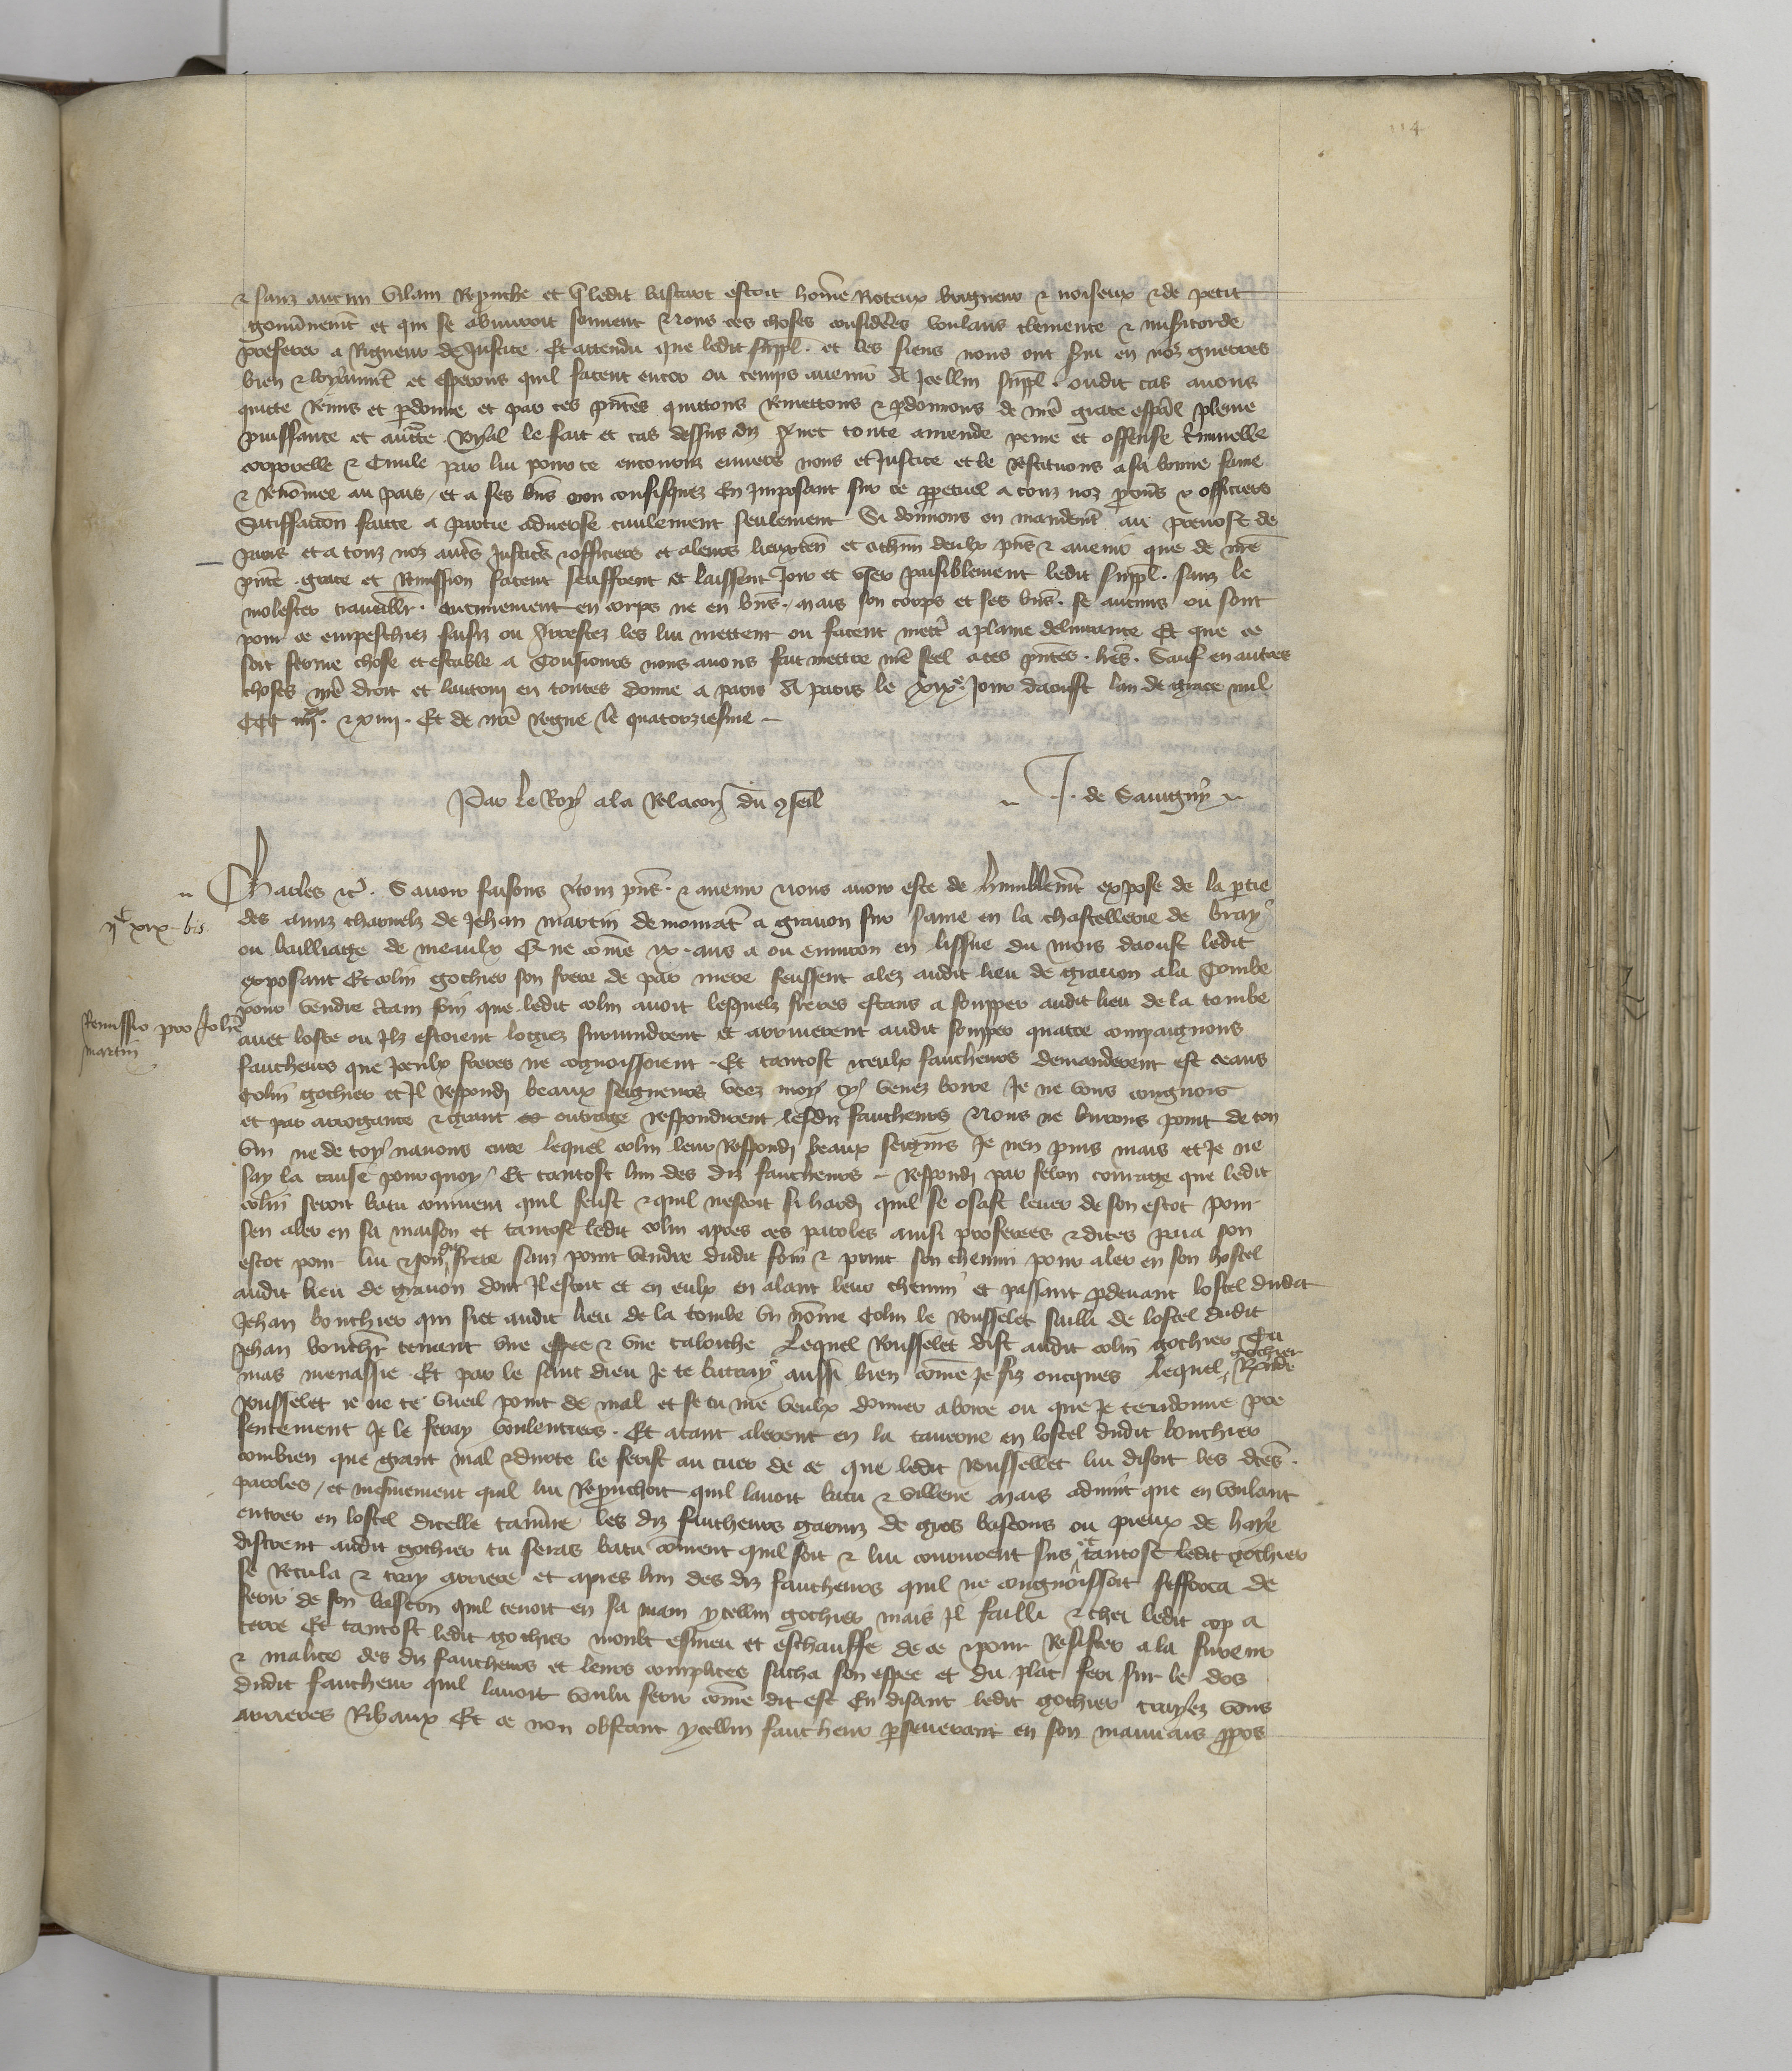 114
& sanz aucun vilain reprouche et q̄ ledit bastart estoit hōme rioteux brigueur & noiseux & de petit
gouv̄nement et qui se abuuroit souuent Nous ces choses considerées voulans clemence & misericorde
preferer a Rigueur de Justice. Et attendu que ledit suppl. et les siens nous ont s̄vi en noz guerres
bien & loyaument et esperons quil facent encor ou temps auenir A Jcellui suppl. oudit cas auons
quitte Remis et p̄donne et par ces pn̄tes quittons Remettons & p̄donnons de nr̄e grace esp̄al pleine
puissance et auctē Royal le fait et cas dessus diz auec toute amende peine et offense Criminelle
corporelle & Ciuile par lui pour ce encouruz enuers nous et Justice et le Restituons a sa bonne fame
& Renōmee au pais / et a ses biēs non confisquez En Jmposant sur ce p̄petuel a touz noz p̄cur̄s & officiers
Satisfaccion faicte a partie aduerse ciuilement seulement Si donnons en mandem̄t au preuost de
paris et a touz noz autr̄s Justiciers & officiers et a leurs lieuxten̄ et a chūn deulx pn̄s & auenir que de nr̄e
pn̄te grace et Remission facent seuffrent et laissent Joir et vser paisiblement ledit suppl. sanz le
molester trauaillier. aucunement en corps ne en biēs. mais son corps et ses biēs. se aucuns ou sont
pour ce empeschiez saisiz ou arrestez les lui mettent ou facent mettr̄ a plaine deliurance Et que ce
soit ferme chose et estable a Tousiours nous auons fait mettre nr̄e seel a ces pn̄tes. lr̄es. Sauf en autres
choses nr̄e droit et lautruy en toutes donne a paris A paris le xixe. Jour daoust lan de grace mil
CCC iiiixx. & xiiii. Et de nr̄e Regne le quatorziesme

Par le Roy a la Relacōn du 9seil
J. de Sauigny

Charles &c̄. Sauoir faisons a touz pn̄s. & auenir Nous auoir este de humblem̄t expose de la p̄tie
des amiz charnelz de Jehan martin demorāt a grauon sur saine en la chastellerie de bray
ou bailliage de meaulx Que cōme ix. ans a ou enuiron en lissue du mois daoust ledit
exposant Et colin gochier son frere de par mere feussent alez audit lieu de grauon a la Tombe
pour vendre certain foin que ledit colin auoit lesquelx freres estans a soupper audit lieu de la tombe
auec loste ou Jlz estoient logiez suruindrent et arriuerent audit soupper quatre compaignons
faucheurs que Jceulx freres ne cognoissoient. Et tantost iceulx faucheurs demanderent est ceans
Colin gochier et Jl Respondi beaux seigneurs veez moy cy venez boire Je ne vous congnois
et par arrogance & grant outrage respondirent lesdiz faucheurs Nous ne burons point de ton
vin ne de toy nauons cure lequel colin leur Respondi beaux seign̄rs Je nen puis mais et Je ne
say la cause pour quoy / Et tantost lun des diz faucheurs – Respondi par felon courage que ledit
colin seroit batu comment quil feust & quil nestoit si hardi quil se osast leuer de son escot pour
sen aler en sa maison et tantost ledit colin apres ces paroles ainsi proferees & dites paia son
escot pour lui & son dit frere sanz point vendre dudit foin & print son chemin pour aler en son hostel
audit lieu de grauon dont Jl estoit et en eulx en alant leur chemin et passant p̄deuant lostel dudit
Jehan bouchier qui siet audit lieu de la tombe vn nōme Colin le Rousselet sailli de lostel dudit
Jehan bouchr̄ tenant vne espee & vne taloiche Lequel Rousselet dist audit colin gochier Tu
mas menassie. Et par le saint dieu Je te batray aussi bien cōme Je fiz oncques Lequel gochier Rn̄di
Rousselet ie ne te vueil point de mal et se tu me veulx donner a boire ou que Je ten donne pre
sentement Je le feray voulentiers. Et atant alerent en la tauerne en lostel dudit bouchier
combien que grant mal & durte le ferist au cuer de ce que ledit Rousselet lui disoit les dcēs.
paroles / et mesmement quil lui Reprouchoit quil lauoit batu & villene Mais aduint que en voulant
entrer en lostel dicelle tau̅ne les diz faucheurs garniz de gros bastons ou pieux de haye
distrent audit gochier tu seras batu cōment quil soit & lui coururent sus et tantost ledit gochier
se Recula & tray arriere et apres lun des diz faucheurs quil ne congnoissoit sefforca de
ferir de son baston quil tenoit en sa main ycellui gochier mais Jl failli & chei ledit cop a
terre Et tantost ledit gochier moult esmeu et eschauffe de ce & pour Resister a la fureur
& malice des diz faucheurs et leurs complices sacha son espee et du plat feri sur le dos
dudit faucheur quil lauoit voulu ferir cōme dit est En disant ledit gochier trayez vous
arrieres Ribaux Et ce non obstant ycellui faucheur p̄seuerant en son mauuais p̄pos

xix bis
Remissio pro Johē
martin